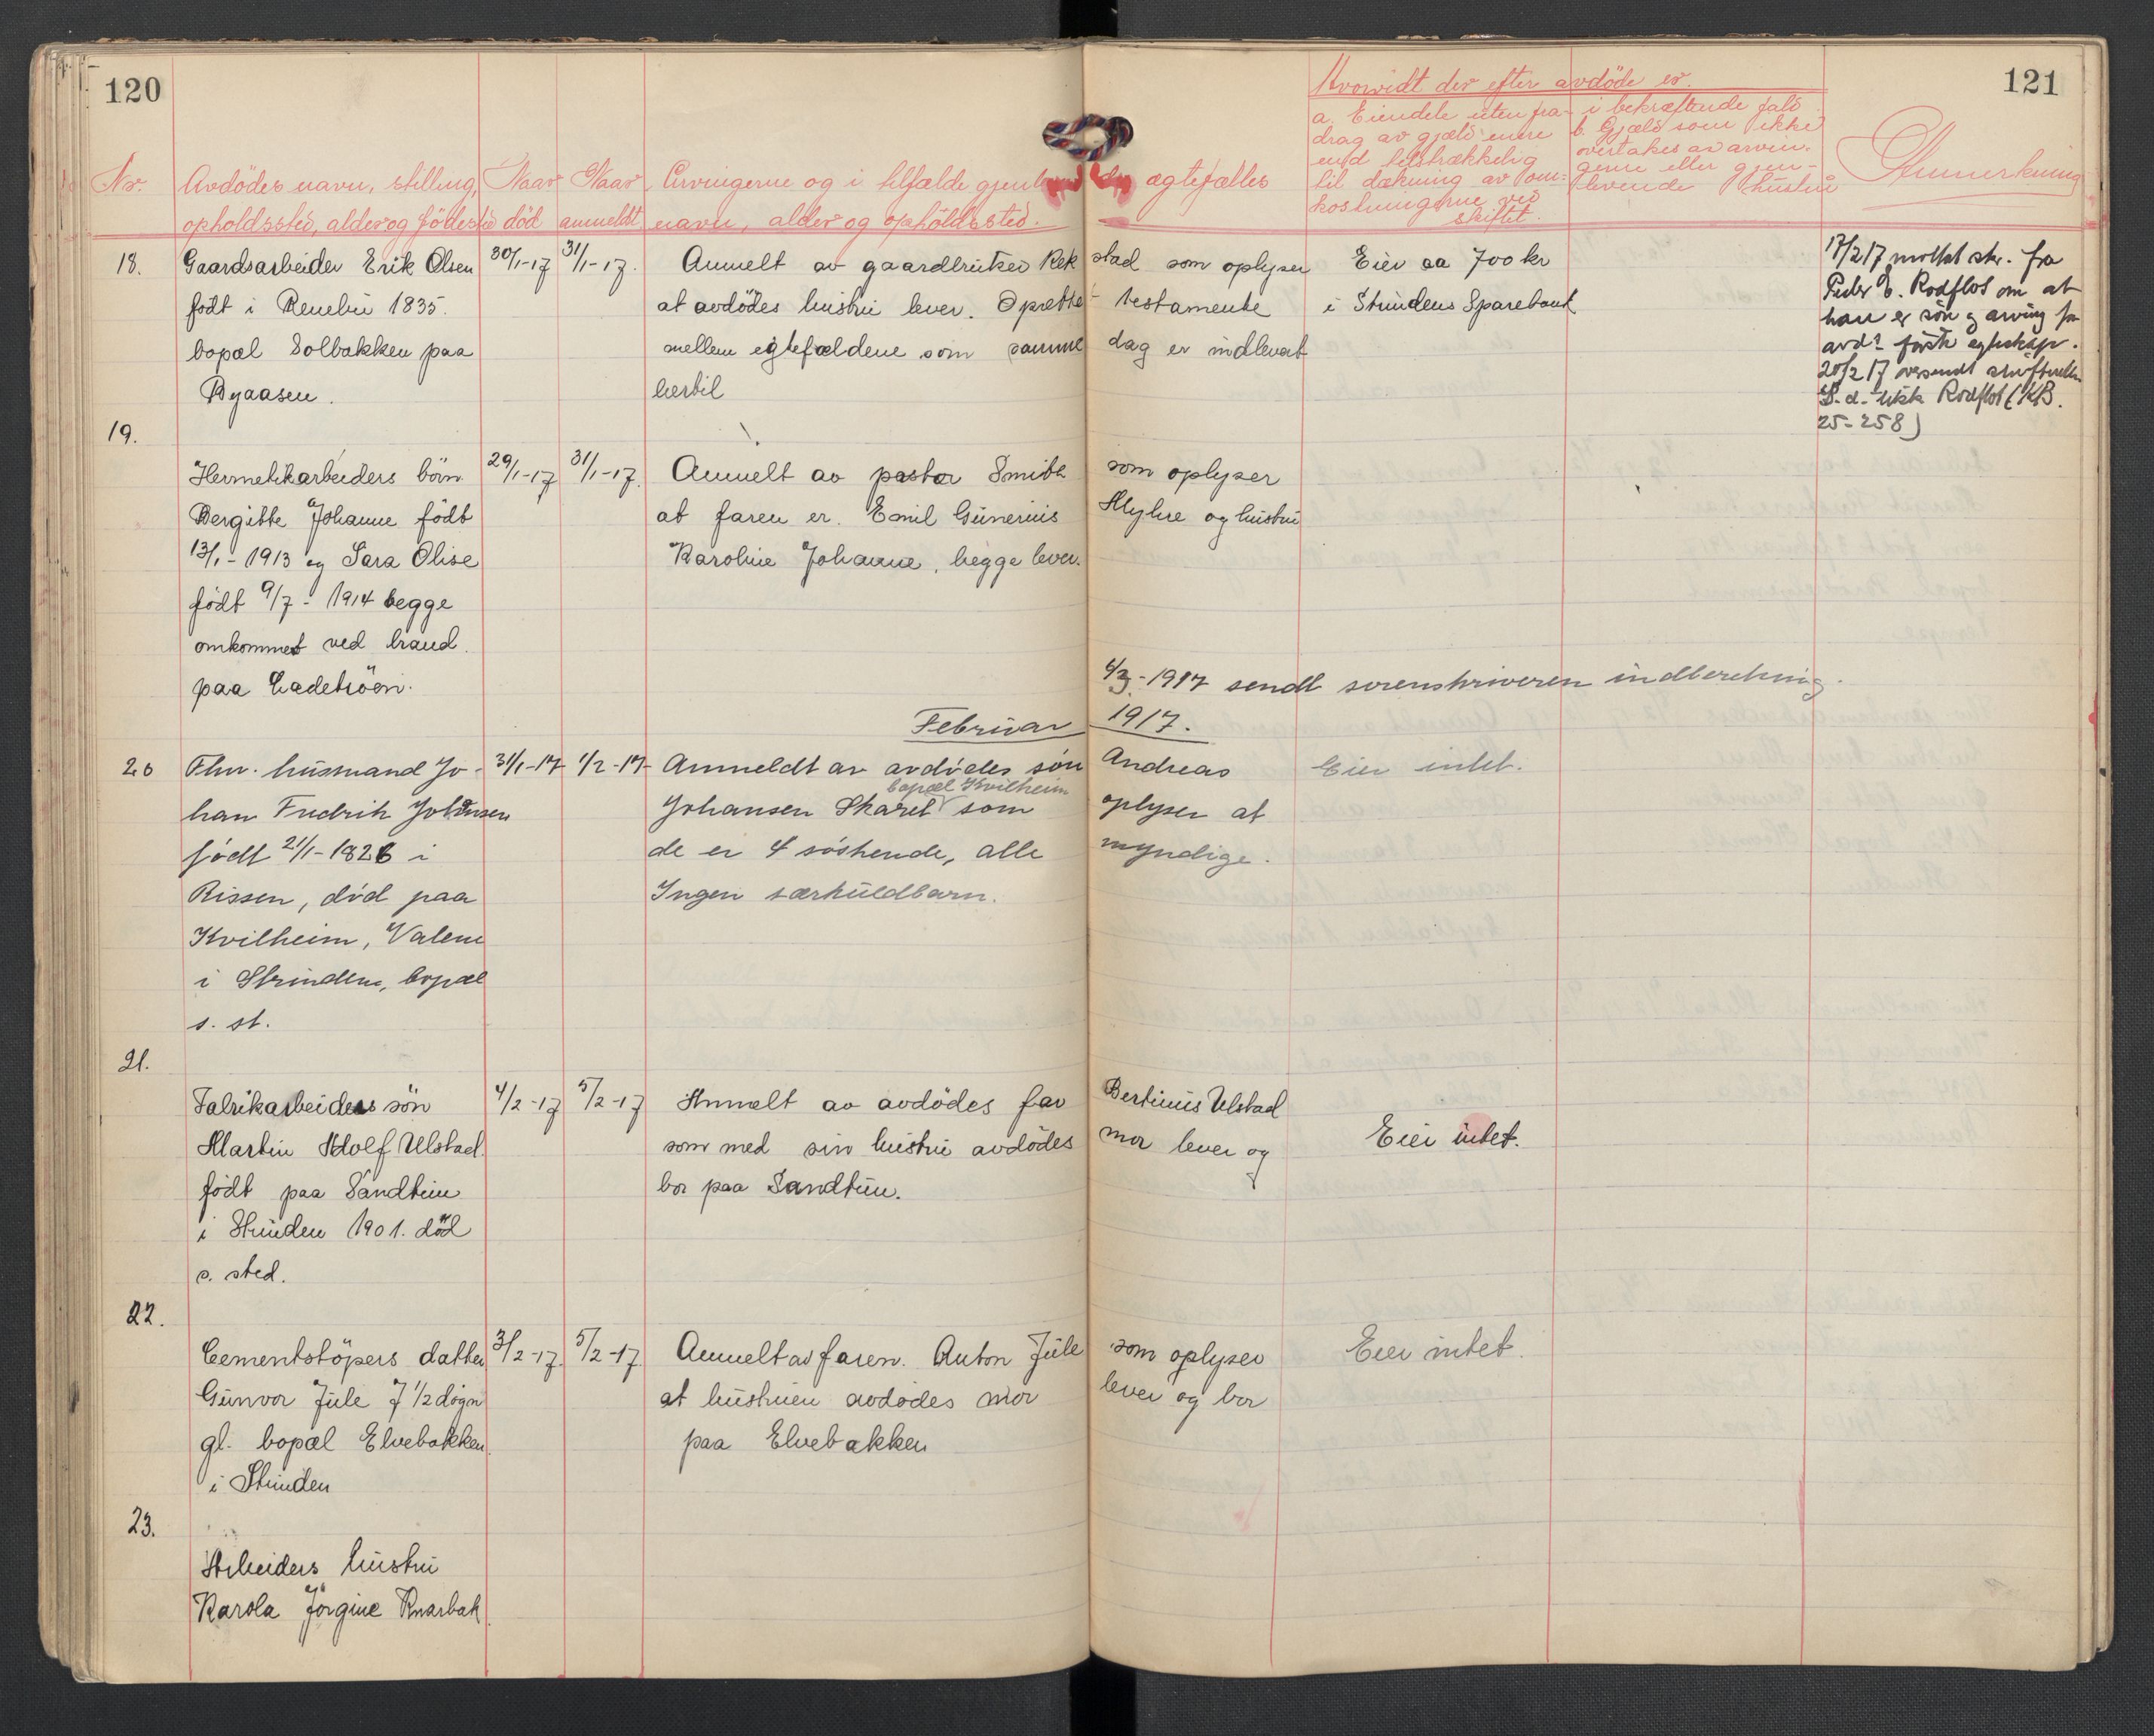 120
121
Hvorvidt der efter avdöde er.
a. Eiendele uten fra-
drag av gjæld mere
end tilstrækkelig
til dækning av om-
kostningerne ved
skiftet.
i bekræftende fald
b. Gjæld som ikke
overtakes av arvin-
gene eller gjen-
levende hustru
Anmerkning
Nr. Avdödes navn, stilling, Naar Naar Arvingerne og i tilfælde ægtefælles
opholdssted, alder og födested död anmeldt navn, alder og opholdssted.
18. Gaardsarbeider Erik Olsen 30/1-17 31/1-17. Anmelt av gaardbruker Rekstad som oplyser Eier ca 700 kr
födt i Rennebu 1835. at avdödes hustru lever. Oprettet testamente i Strindens Sparebank
bopæl Solbakken paa mellem egtefældene som samme dag er indlevert
Byaasen. hertil
17/2 17 mottat skr. fra
Peder E. Rodflot om at
han er sön og arving
avd? förste egteskap.
20/2 17 oversendt
S. d. Rodflot (KB.
25-258)
19.
Hermetikarbeiders börn 29/1-17 31/1-17. Anmelt av pastor Smith som oplyser
Bergitte Johanne födt at faren er. Emil Gunerius Myhre og hustru
13/1-1913 og Sara Olise Karoline Johanne, begge lever.
födt 9/7-1914 begge
omkommet ved brand
paa Ladetröen.
1917 sendt sorenskriveren indberetning.
Februar 1917.
20 Fhv. husmand Jo- 31/1-17 1/2-17 Anmeldt av avdödes sön Andreas Eier intet.
bopæl Kvilheim
han Fredrik Johansen Johansen Skaret som oplyser at
födt 21/1-1826 i de er 4 söskende, alle myndige.
Rissen, död paa Ingen særkuldbarn.
Kvilheim, Valene
i Strinden, bopæl
s. st.
21.
Fabrikarbeiders sön 4/2-17 5/2-17 Anmelt av avdödes far Bertinus Ulstad
Martin Adolf Ulstad som med sin hustru avdödes mor lever og Eier intet.
födt paa Sandtun bor paa Sandtun.
i Strinden 1901. död
s. sted.
22.
Cementstöpers datter 3/2-17. 5/2-17 Anmelt av faren. Anton Jule som oplyser Eier intet.
Gunvor Jule 7 1/2 dögn at hustruen avdödes mor lever og bor
gl. bopæl Elvebakken paa Elvebakken
i Strinden
23.
Arbeiders hustru
Karola Jörgine Knarbak